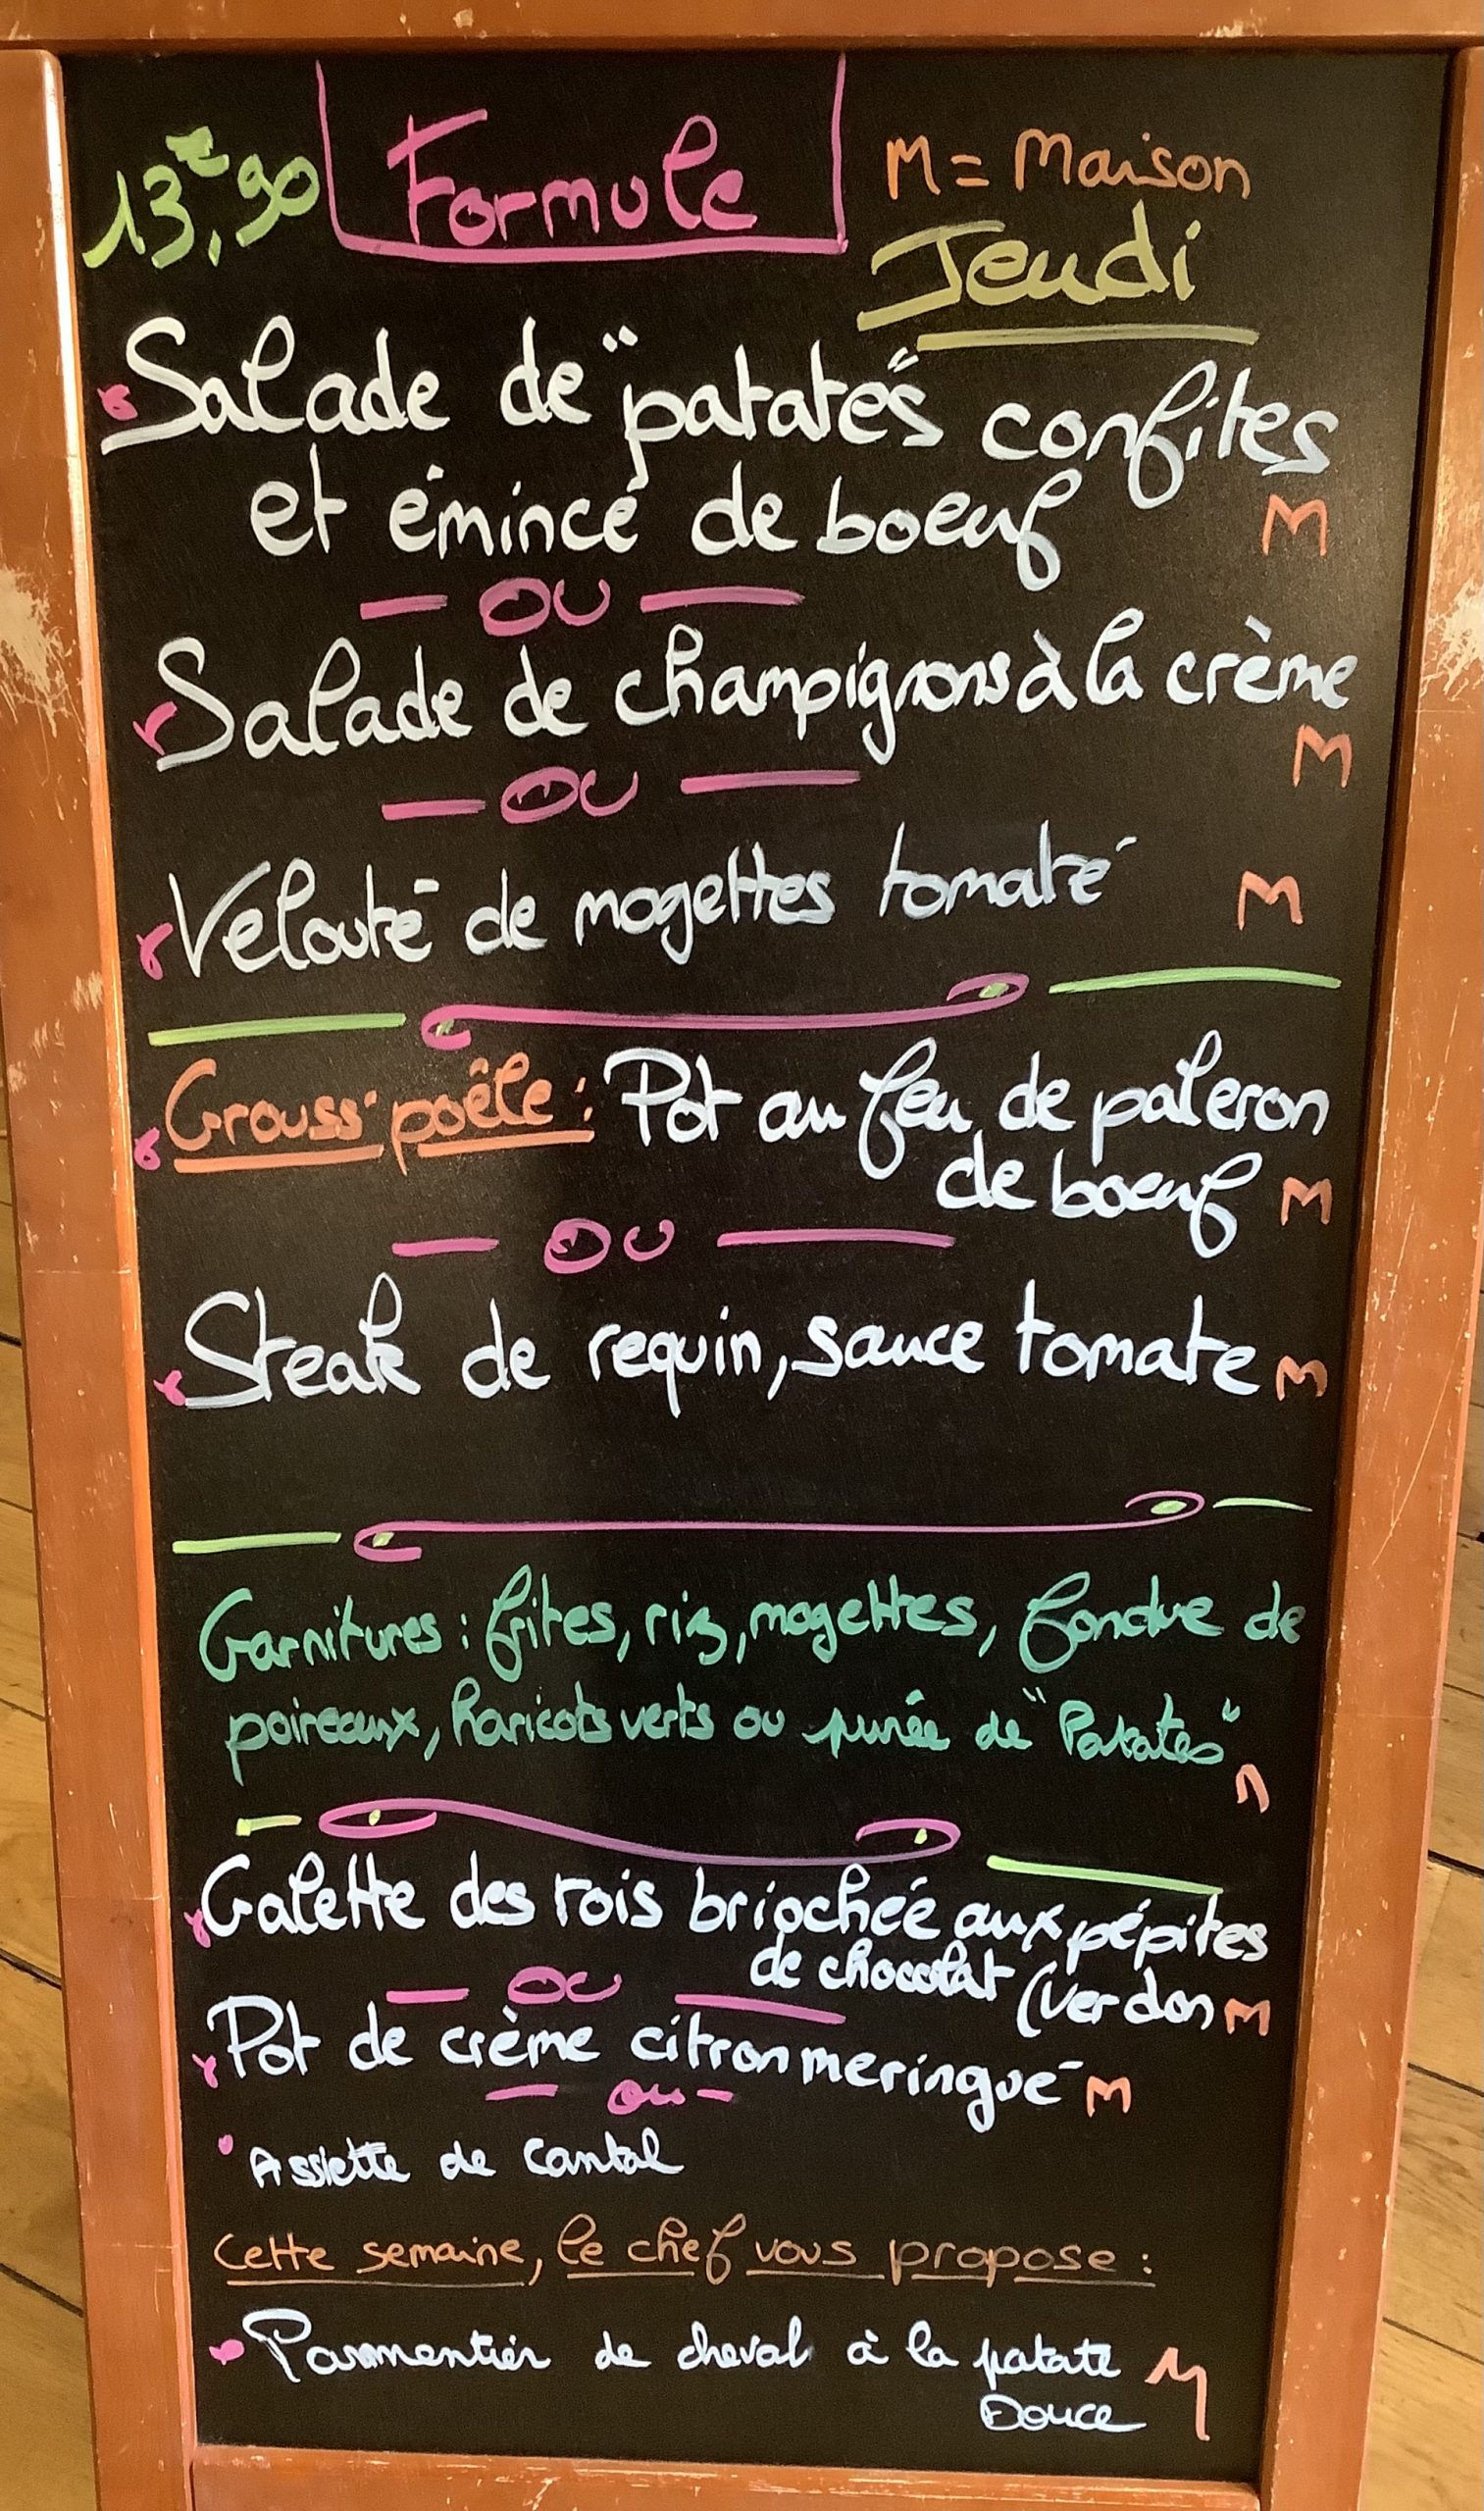 13€,90 Formule M = Maison
Jeudi
Salade de "patates" confites
et émincé de boeuf M
- OU -
Salade de champignons à la crème
M
- OU -
Velouté de mogettes tomaté M
Grouss' poêle : Pot au feu de paleron
de boeuf M
- OU -
Steak de requin, sauce tomate M
Garnitures : frites, riz, mogettes, fondue de
poireaux, haricots verts ou purée de "Patates"
M
Galette des rois briochée aux pépites
de chocolat (Verdon M
- OU -
Pot de crème citron meringué M
- ou -
Assiette de Cantal
Cette semaine, le chef vous propose :
Parmentier de cheval à la patate M
Douce